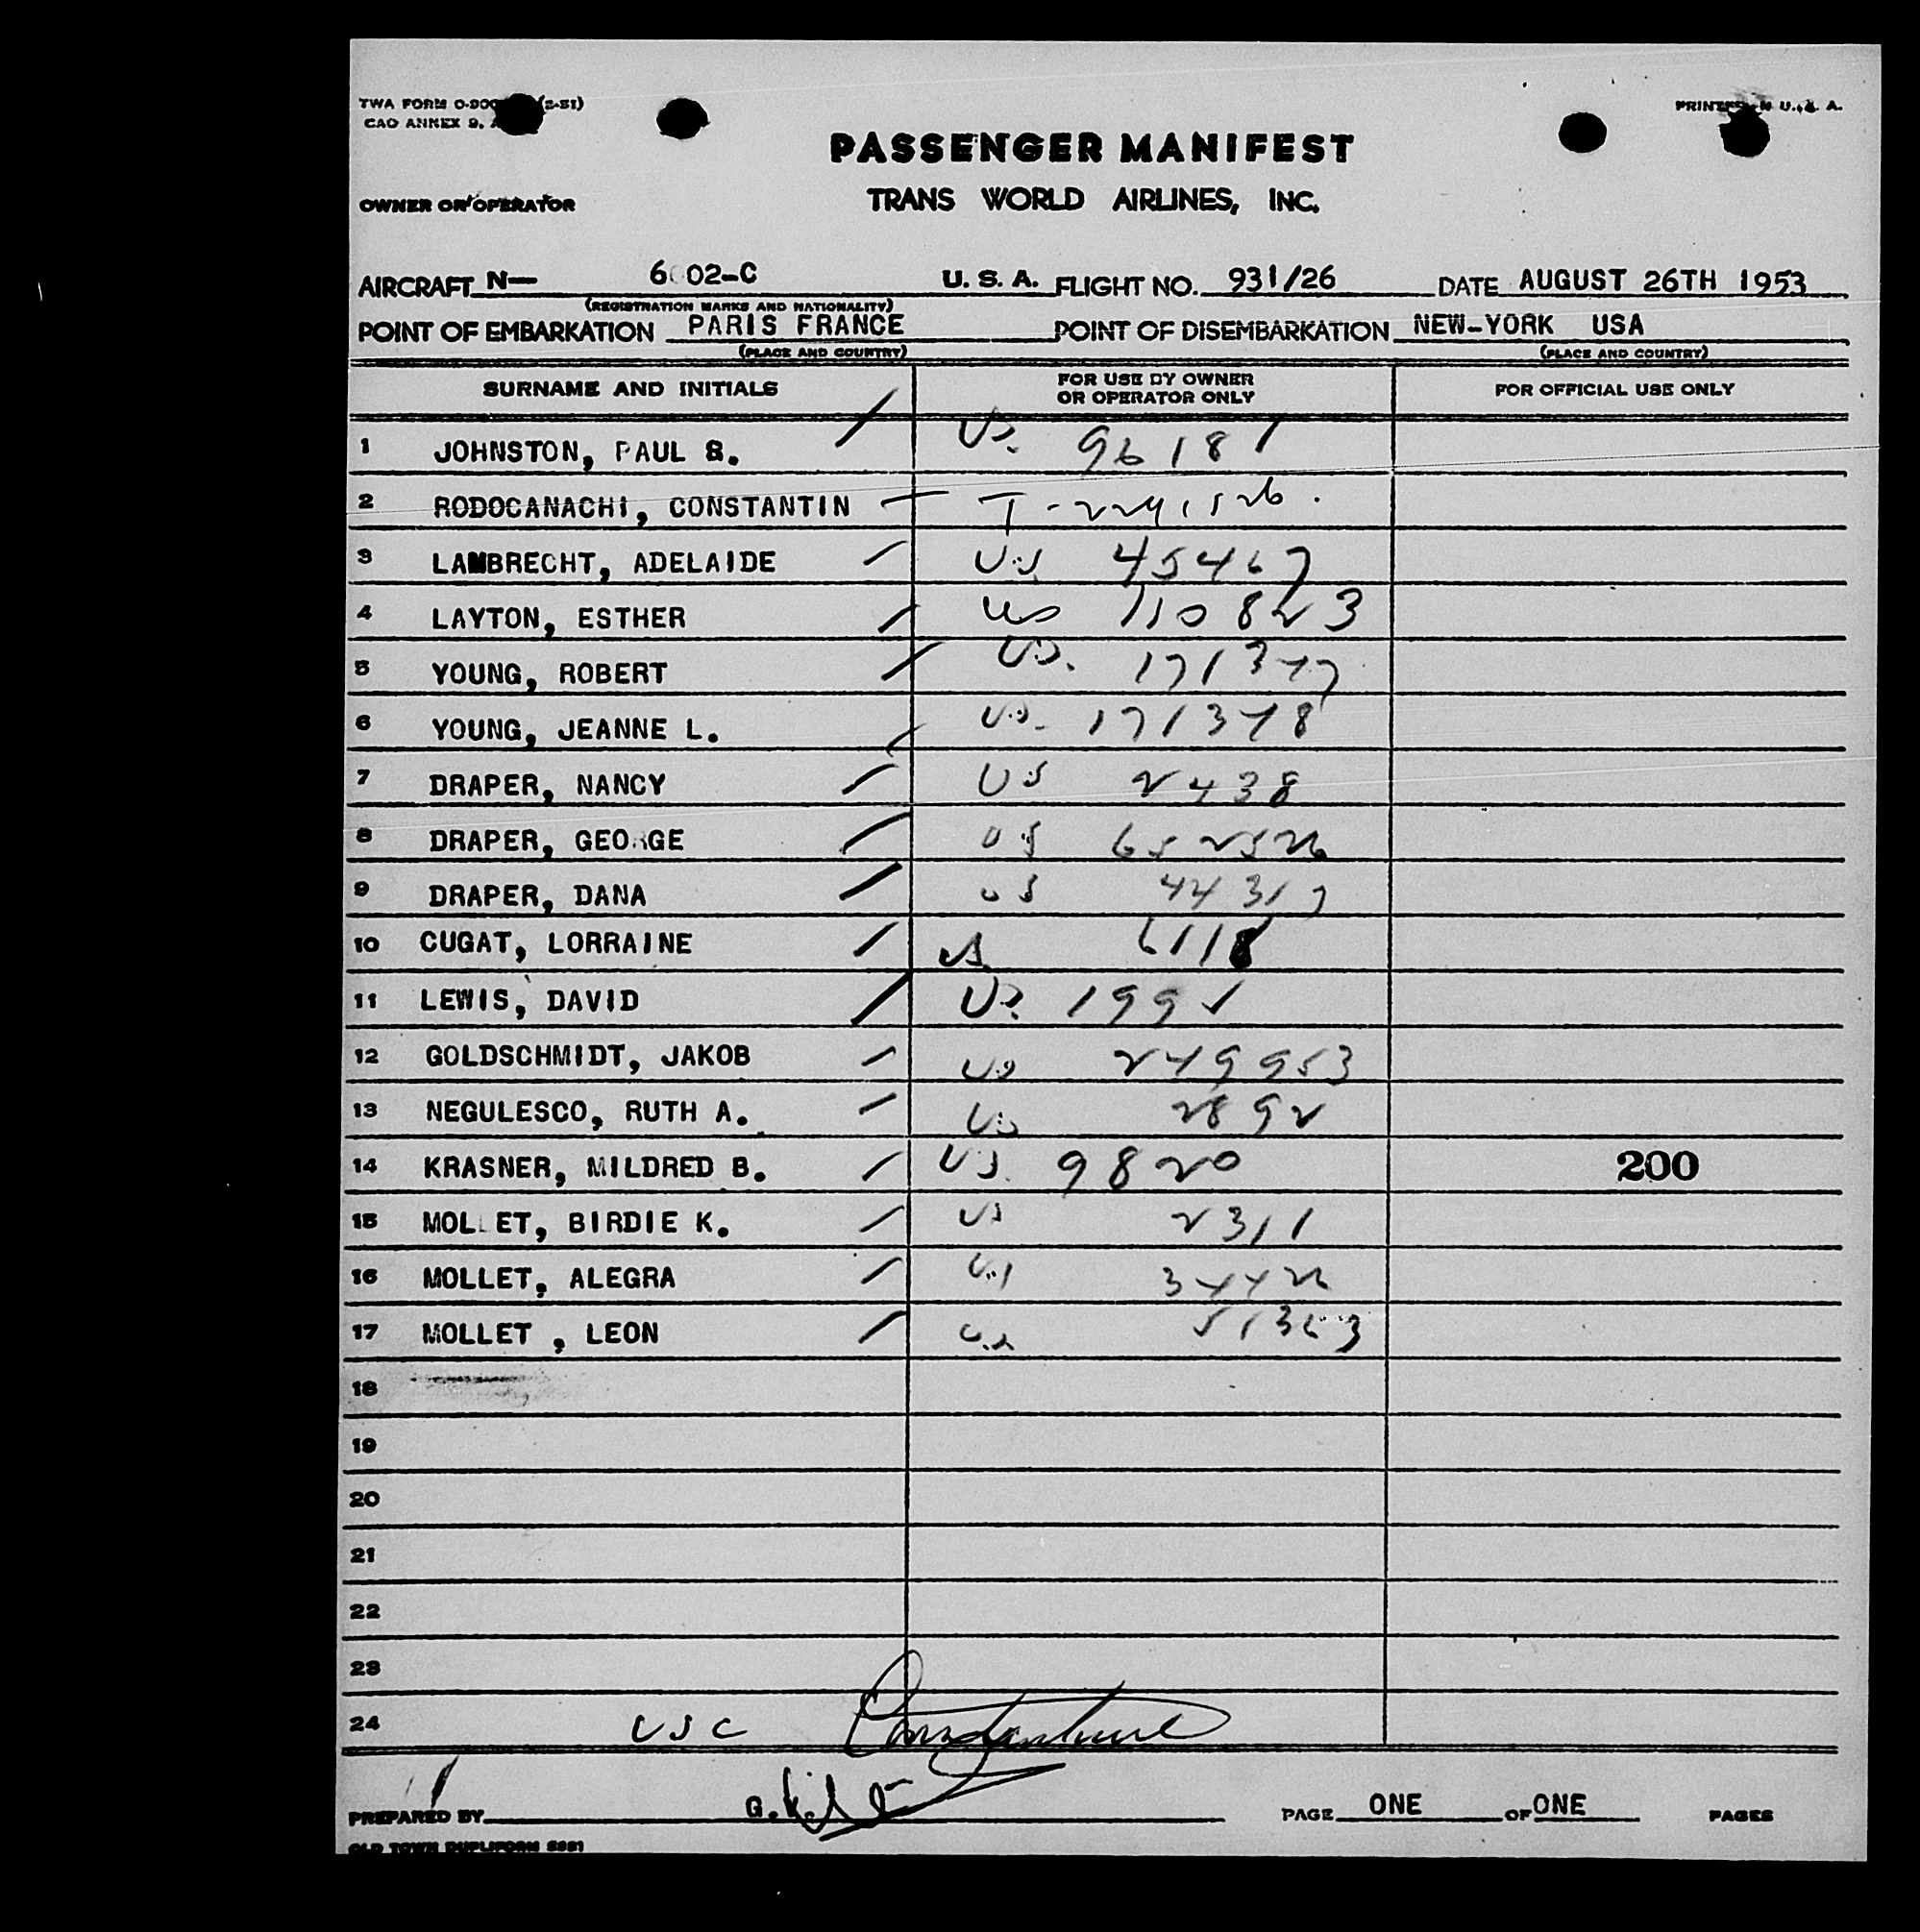 TWA FORM (2-51)
CAO ANNEX 9.
PRINTED IN U.S.A.
PASSENGER MANIFEST
OWNER OR OPERATOR
TRANS WORLD AIRLINES, INC.
AIRCRAFT N— 6 02-C U. S. A. FLIGHT NO. 931/26 DATE AUGUST 26TH 1953
(REGISTRATION MARKS AND NATIONALITY)
POINT OF EMBARKATION PARIS FRANCE POINT OF DISEMBARKATION NEW-YORK USA
(PLACE AND COUNTRY) (PLACE AND COUNTRY)
SURNAME AND INITIALS FOR USE BY OWNER OR OPERATOR ONLY FOR OFFICIAL USE ONLY
1 JOHNSTON, PAUL S. US. 96181
2 RODOCANACHI, CONSTANTIN
3 LAMBRECHT, ADELAIDE US 45467
4 LAYTON, ESTHER US 110823
5 YOUNG, ROBERT US. 171377
6 YOUNG, JEANNE L. US. 171378
7 DRAPER, NANCY US 2438
8 DRAPER, GEORGE US 652526
9 DRAPER, DANA US 44317
10 CUGAT, LORRAINE US 6118
11 LEWIS, DAVID US. 1992
12 GOLDSCHMIDT, JAKOB US 249953
13 NEGULESCO, RUTH A. US 2892
14 KRASNER, MILDRED B. US. 9820 200
15 MOLLET, BIRDIE K. US 2311
16 MOLLET, ALEGRA US
17 MOLLET , LEON US 51363
18
19
20
21
22
23
24 USC
PREPARED BY G. PAGE ONE OF ONE PAGES
OLD TOWN DUPLIFORM